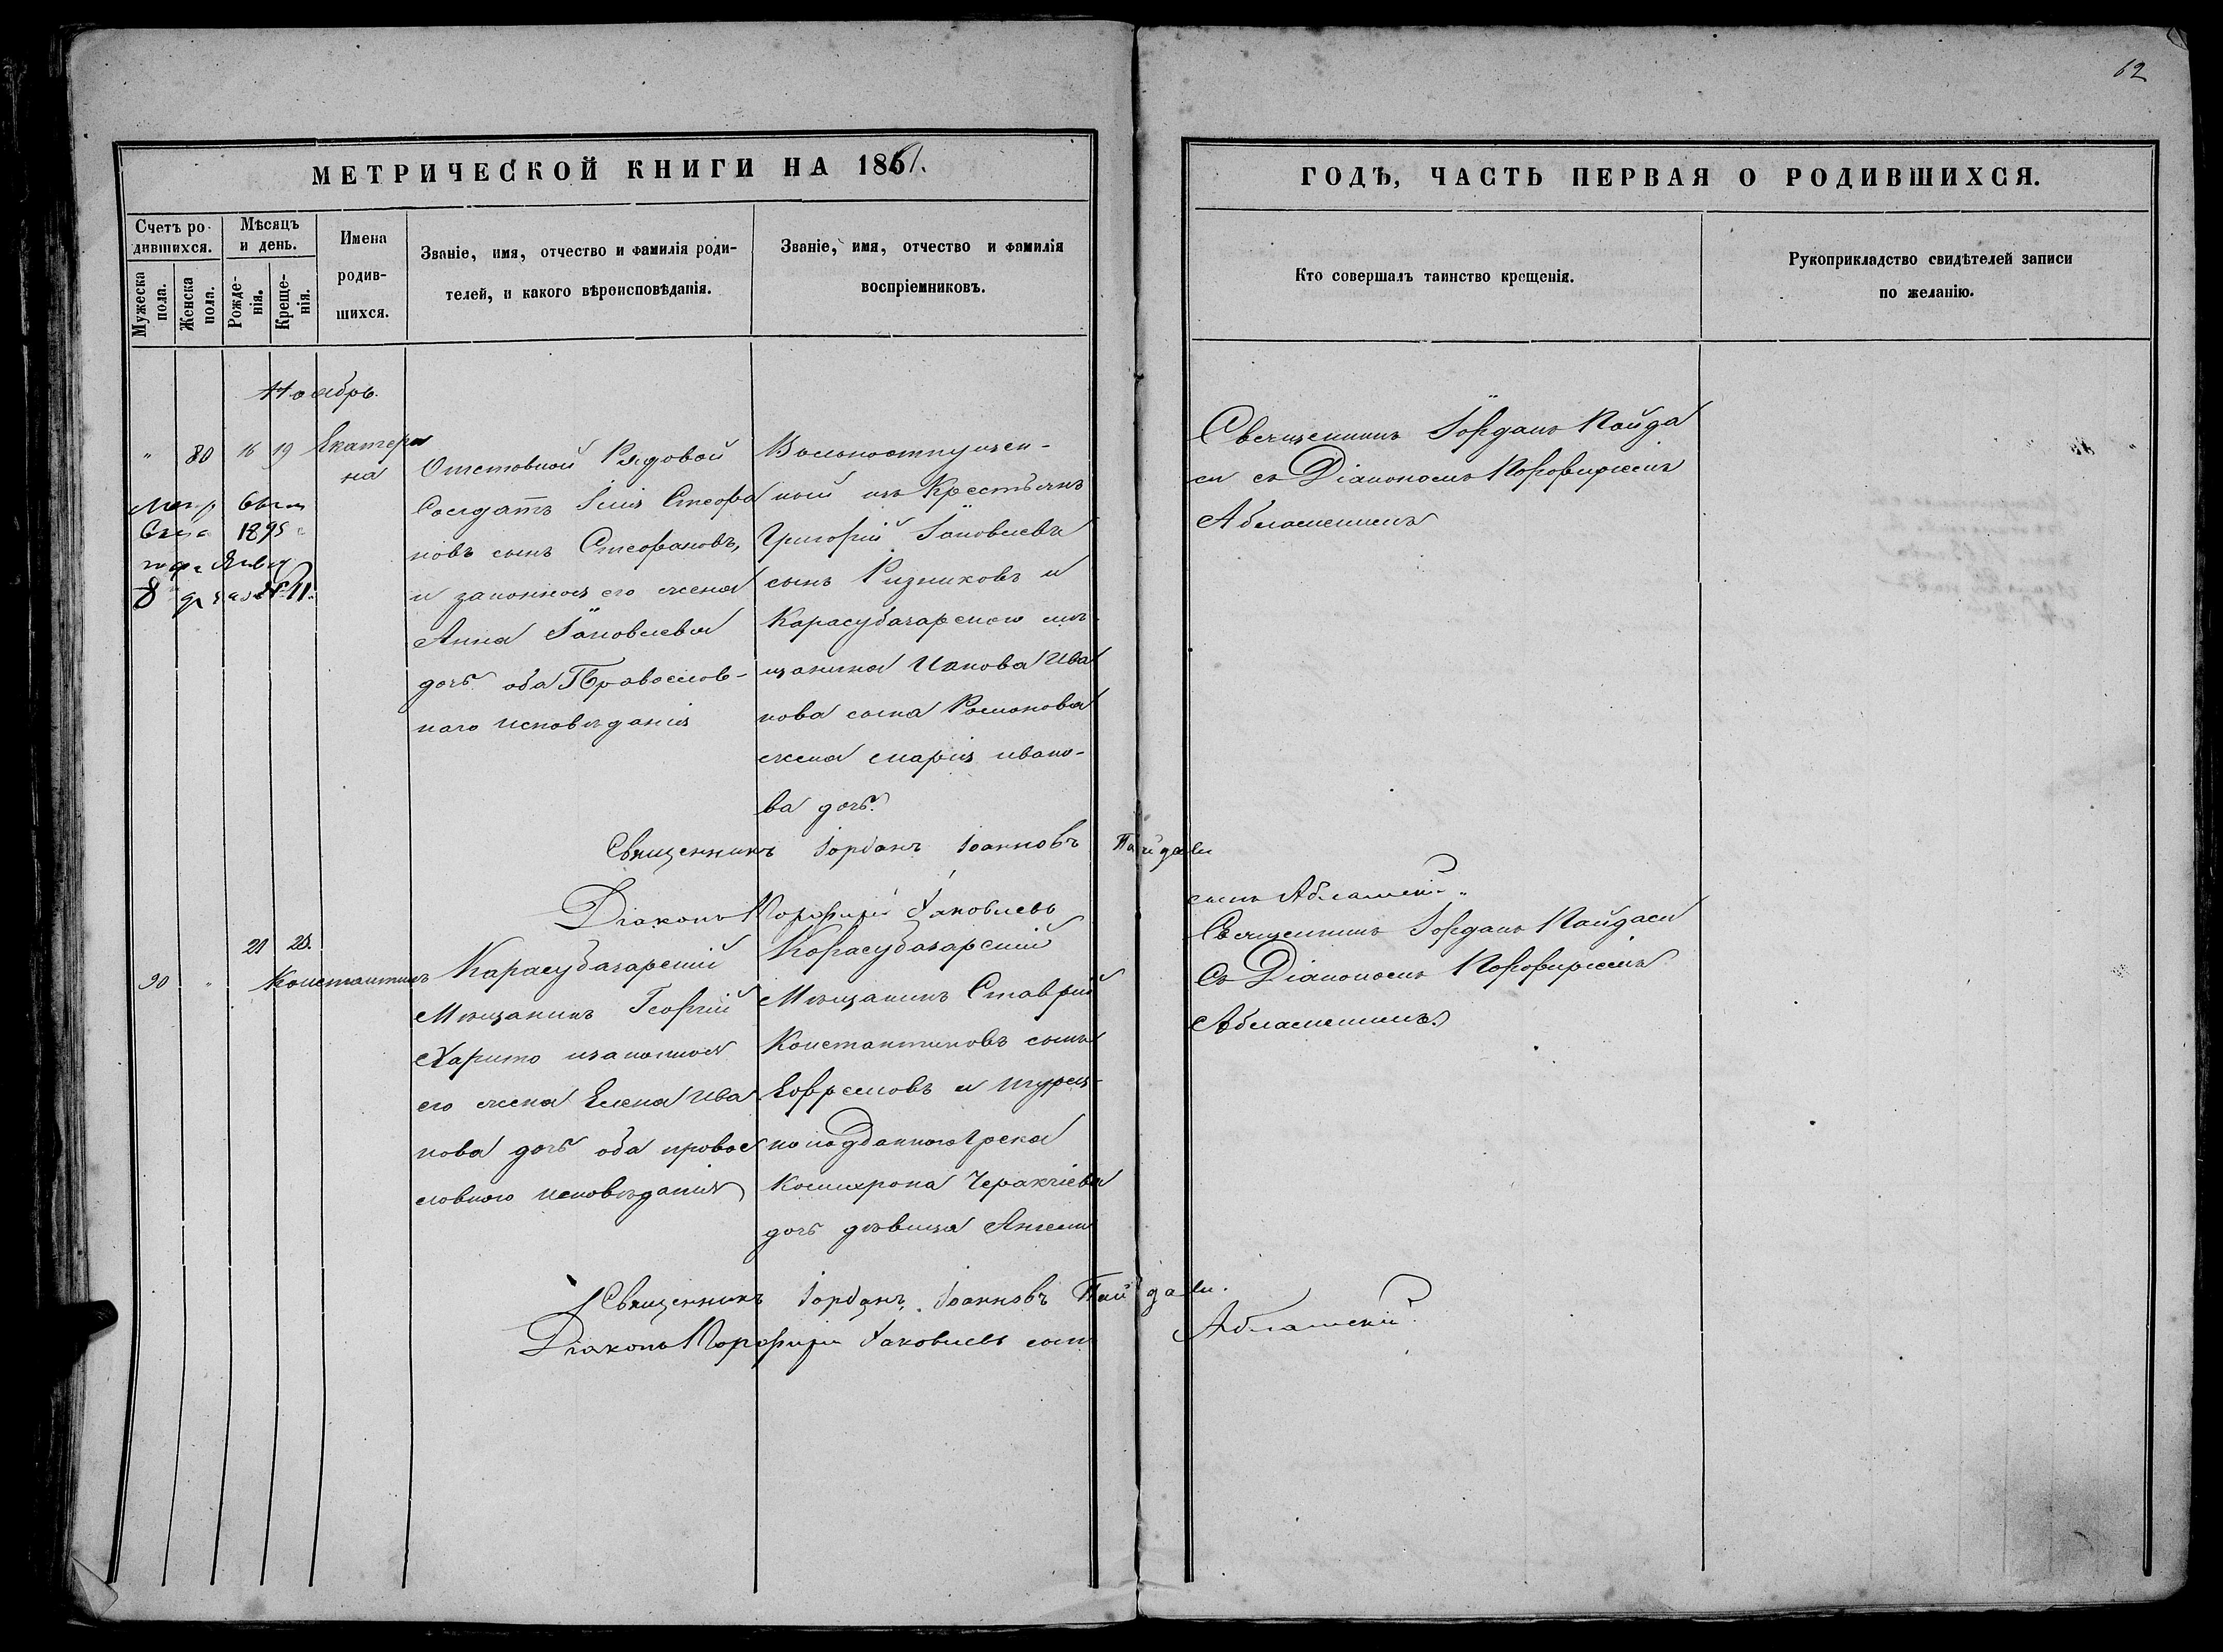 62
МЕТРИЧЕСКОЙ КНИГИ НА 1861.
Счетъ ро-
дившихся.
Мужеска
пола.
Женска
пола.
Мѣсяцъ
и день.
Рожде-
нія.
Креще-
нія.
Имена
родив-
шихся.
Званіе, имя, отчество и фамилія роди-
телей, и какого вѣроисповѣданія.
Званіе, имя, отчество и фамилія
воспріемниковъ.
ГОДЪ, ЧАСТЬ ПЕРВАЯ О РОДИВШИХСЯ.
Кто совершалъ таинство крещенія.
Рукоприкладство свидѣтелей записи
по желанію.
Ноябрь.
" 80 16 19 Екатери
на
1895
8
Отставной Рядовой
Солдатъ Илія Стефа
новъ сынъ Стефановъ,
и законноя его жена
Анна Іаковлева
дочь оба Православ-
наго исповѣданія
Вольноотпущен-
ный изъ Крестьянъ
Григорій Іаковлевъ
сынъ Ризниковъ и
Карасубазарскаго мѣ-
щанина Иванова Ива
нова сына Романова
жена марія ивано-
ва дочь.
Священникъ Іорданъ Пайда
си съ Діакономъ Порфиріемъ
Аблашскимъ
Священникъ Іорданъ Іоанновъ Пайдаси
Діаконъ Порфирій Іаковлевъ
сынъ Аблашскій.
90 " 21 25. Константинъ
Карасубазарскій
Мѣщанинъ Георгій
Харито изаконноя
его жена Елена Ива
нова дочь оба правос
лавнаго исповѣданія
Карасубазарскій
Мѣщанинъ Ставрій
Константиновъ сынъ
Ефремовъ и турец-
ко подданного грека
дочь дѣвица
Священникъ Іорданъ Пайдаси
Съ Діакономъ Порфиріемъ
Аблашскимъ.
Священникъ Іорданъ Іоанновъ Пайдаси.
Діаконъ Порфирій Іаковлевъ сынъ Аблашскій.